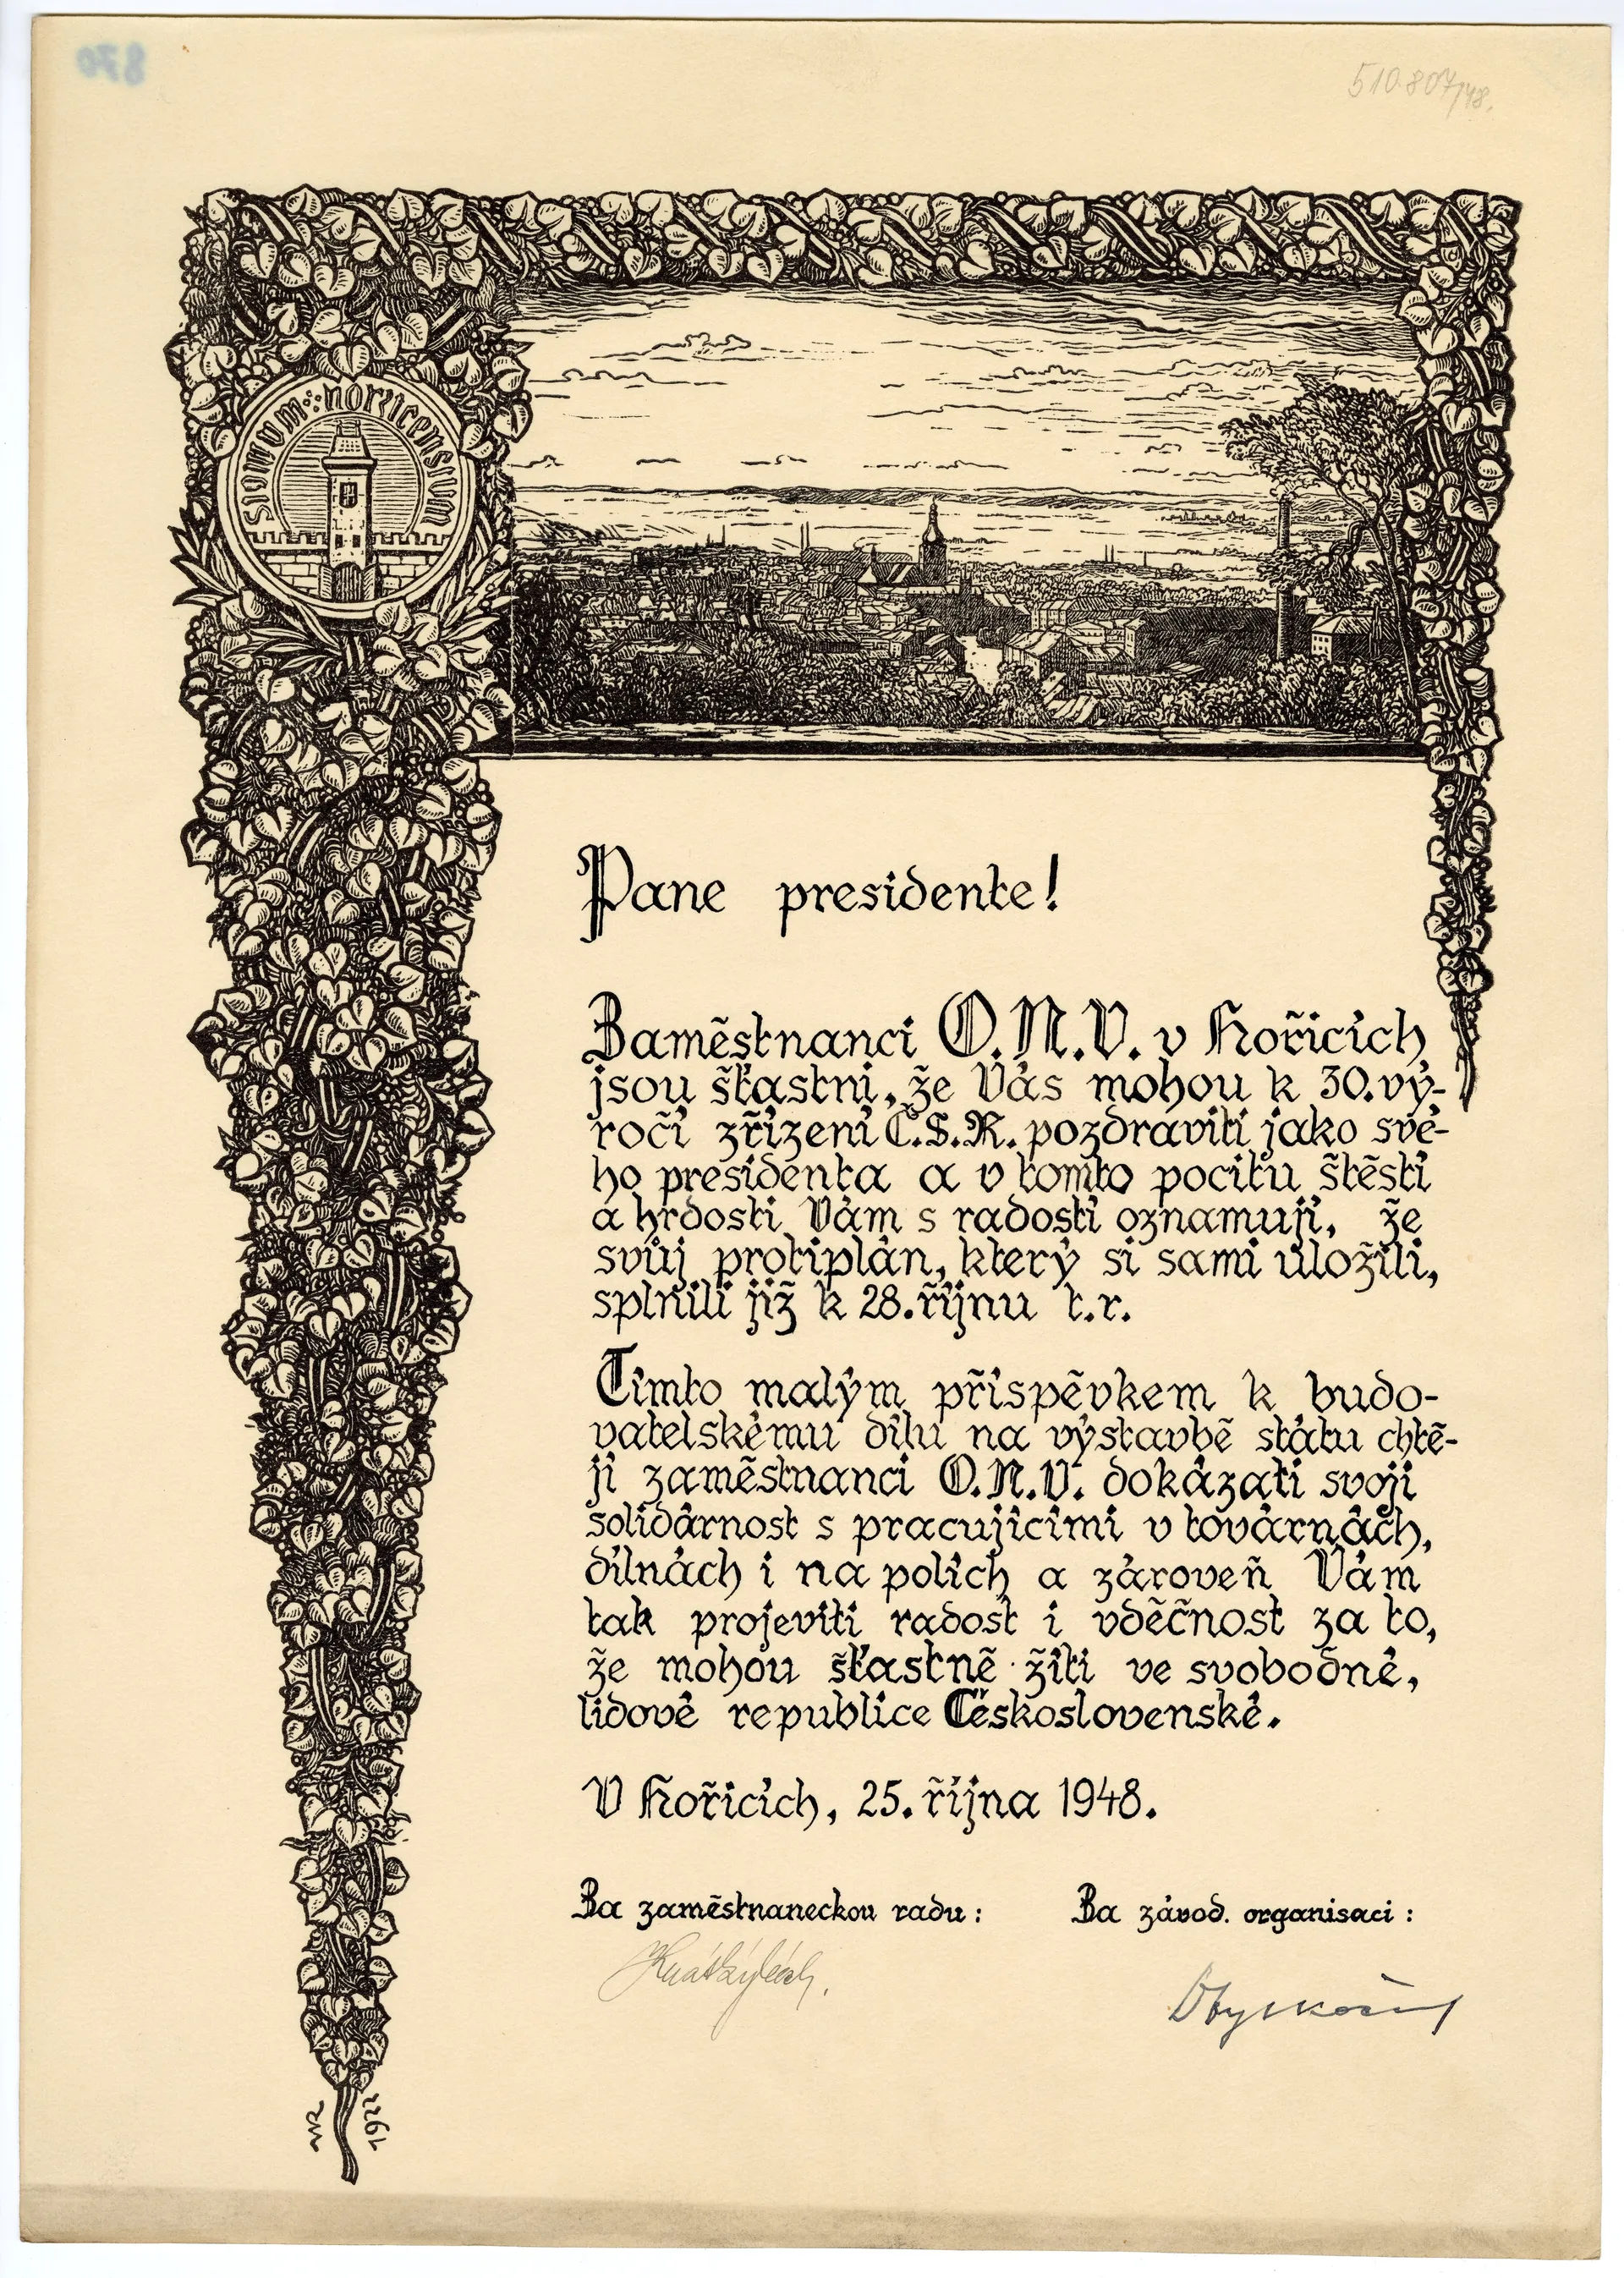 870
510.807/48.
SIGNUM HORZICENSIUM
Pane presidente!
Zaměstnanci O.N.V. v Hořicích
jsou šťastni, že Vás mohou k 30. vý-
ročí zřízení Č.S.R. pozdraviti jako své-
ho presidenta a v tomto pocitu štěstí
a hrdosti Vám s radostí oznamují, že
svůj protiplán, který si sami uložili,
splnili již k 28. říjnu t.r.
Tímto malým příspěvkem k budo-
vatelskému dílu na výstavbě státu chtě-
jí zaměstnanci O.N.V. dokázati svoji
solidárnost s pracujícími v továrnách,
dílnách i na polích a zároveň Vám
tak projeviti radost i vděčnost za to,
že mohou šťastně žíti ve svobodné,
lidově republice Československé.
V Hořicích, 25. října 1948.
Za zaměstnaneckou radu: Za závod. organisaci:
1922